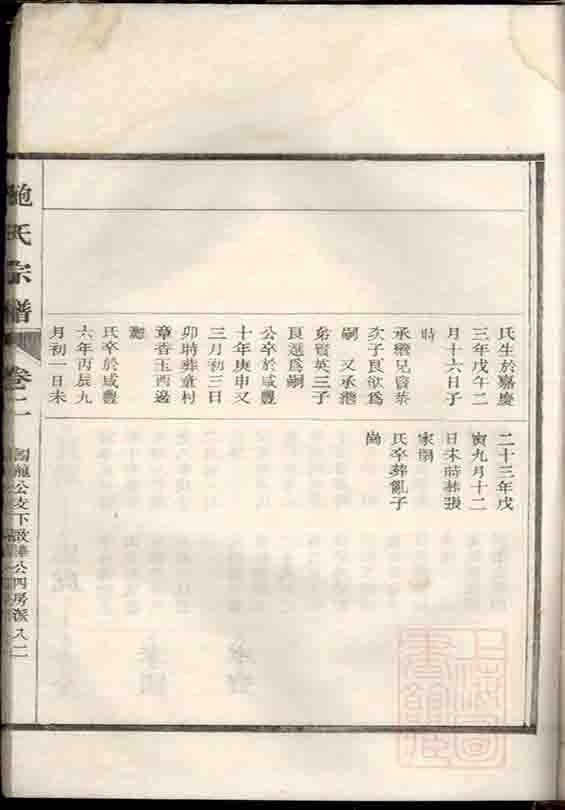 氏生於嘉慶
三年戊午二
月十六日子
時
承繼兄賓棻
次子良欲爲
嗣 又承繼
弟賓英三子
良選爲嗣
公卒於咸豐
十年庚申又
三月初三日
卯時葬童村
章杳玉西邊
氏卒於咸豐
六年丙辰九
月初一日未
二十三年戊
寅九月十二
日未時葬張
家
氏卒葬亂子
崗
鮑氏宗譜
卷二
公支下啟 公四房派 八二
上海圖書館藏